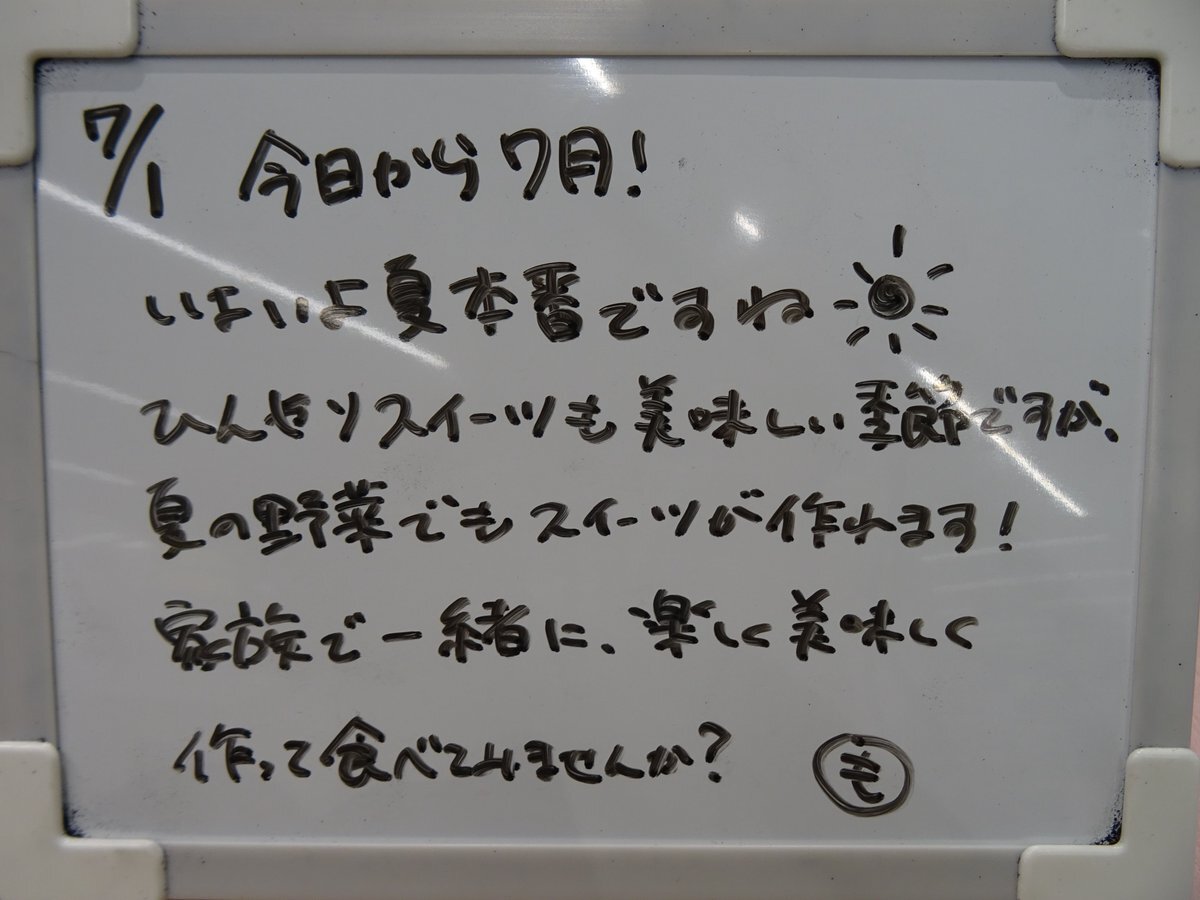 7/1 今日から7月!
いよいよ夏本番ですね
ひんやりスイーツも美味しい季節ですが、
夏の野菜でもスイーツが作れます!
家族で一緒に、楽しく美味しく
作って食べてみませんか?
も